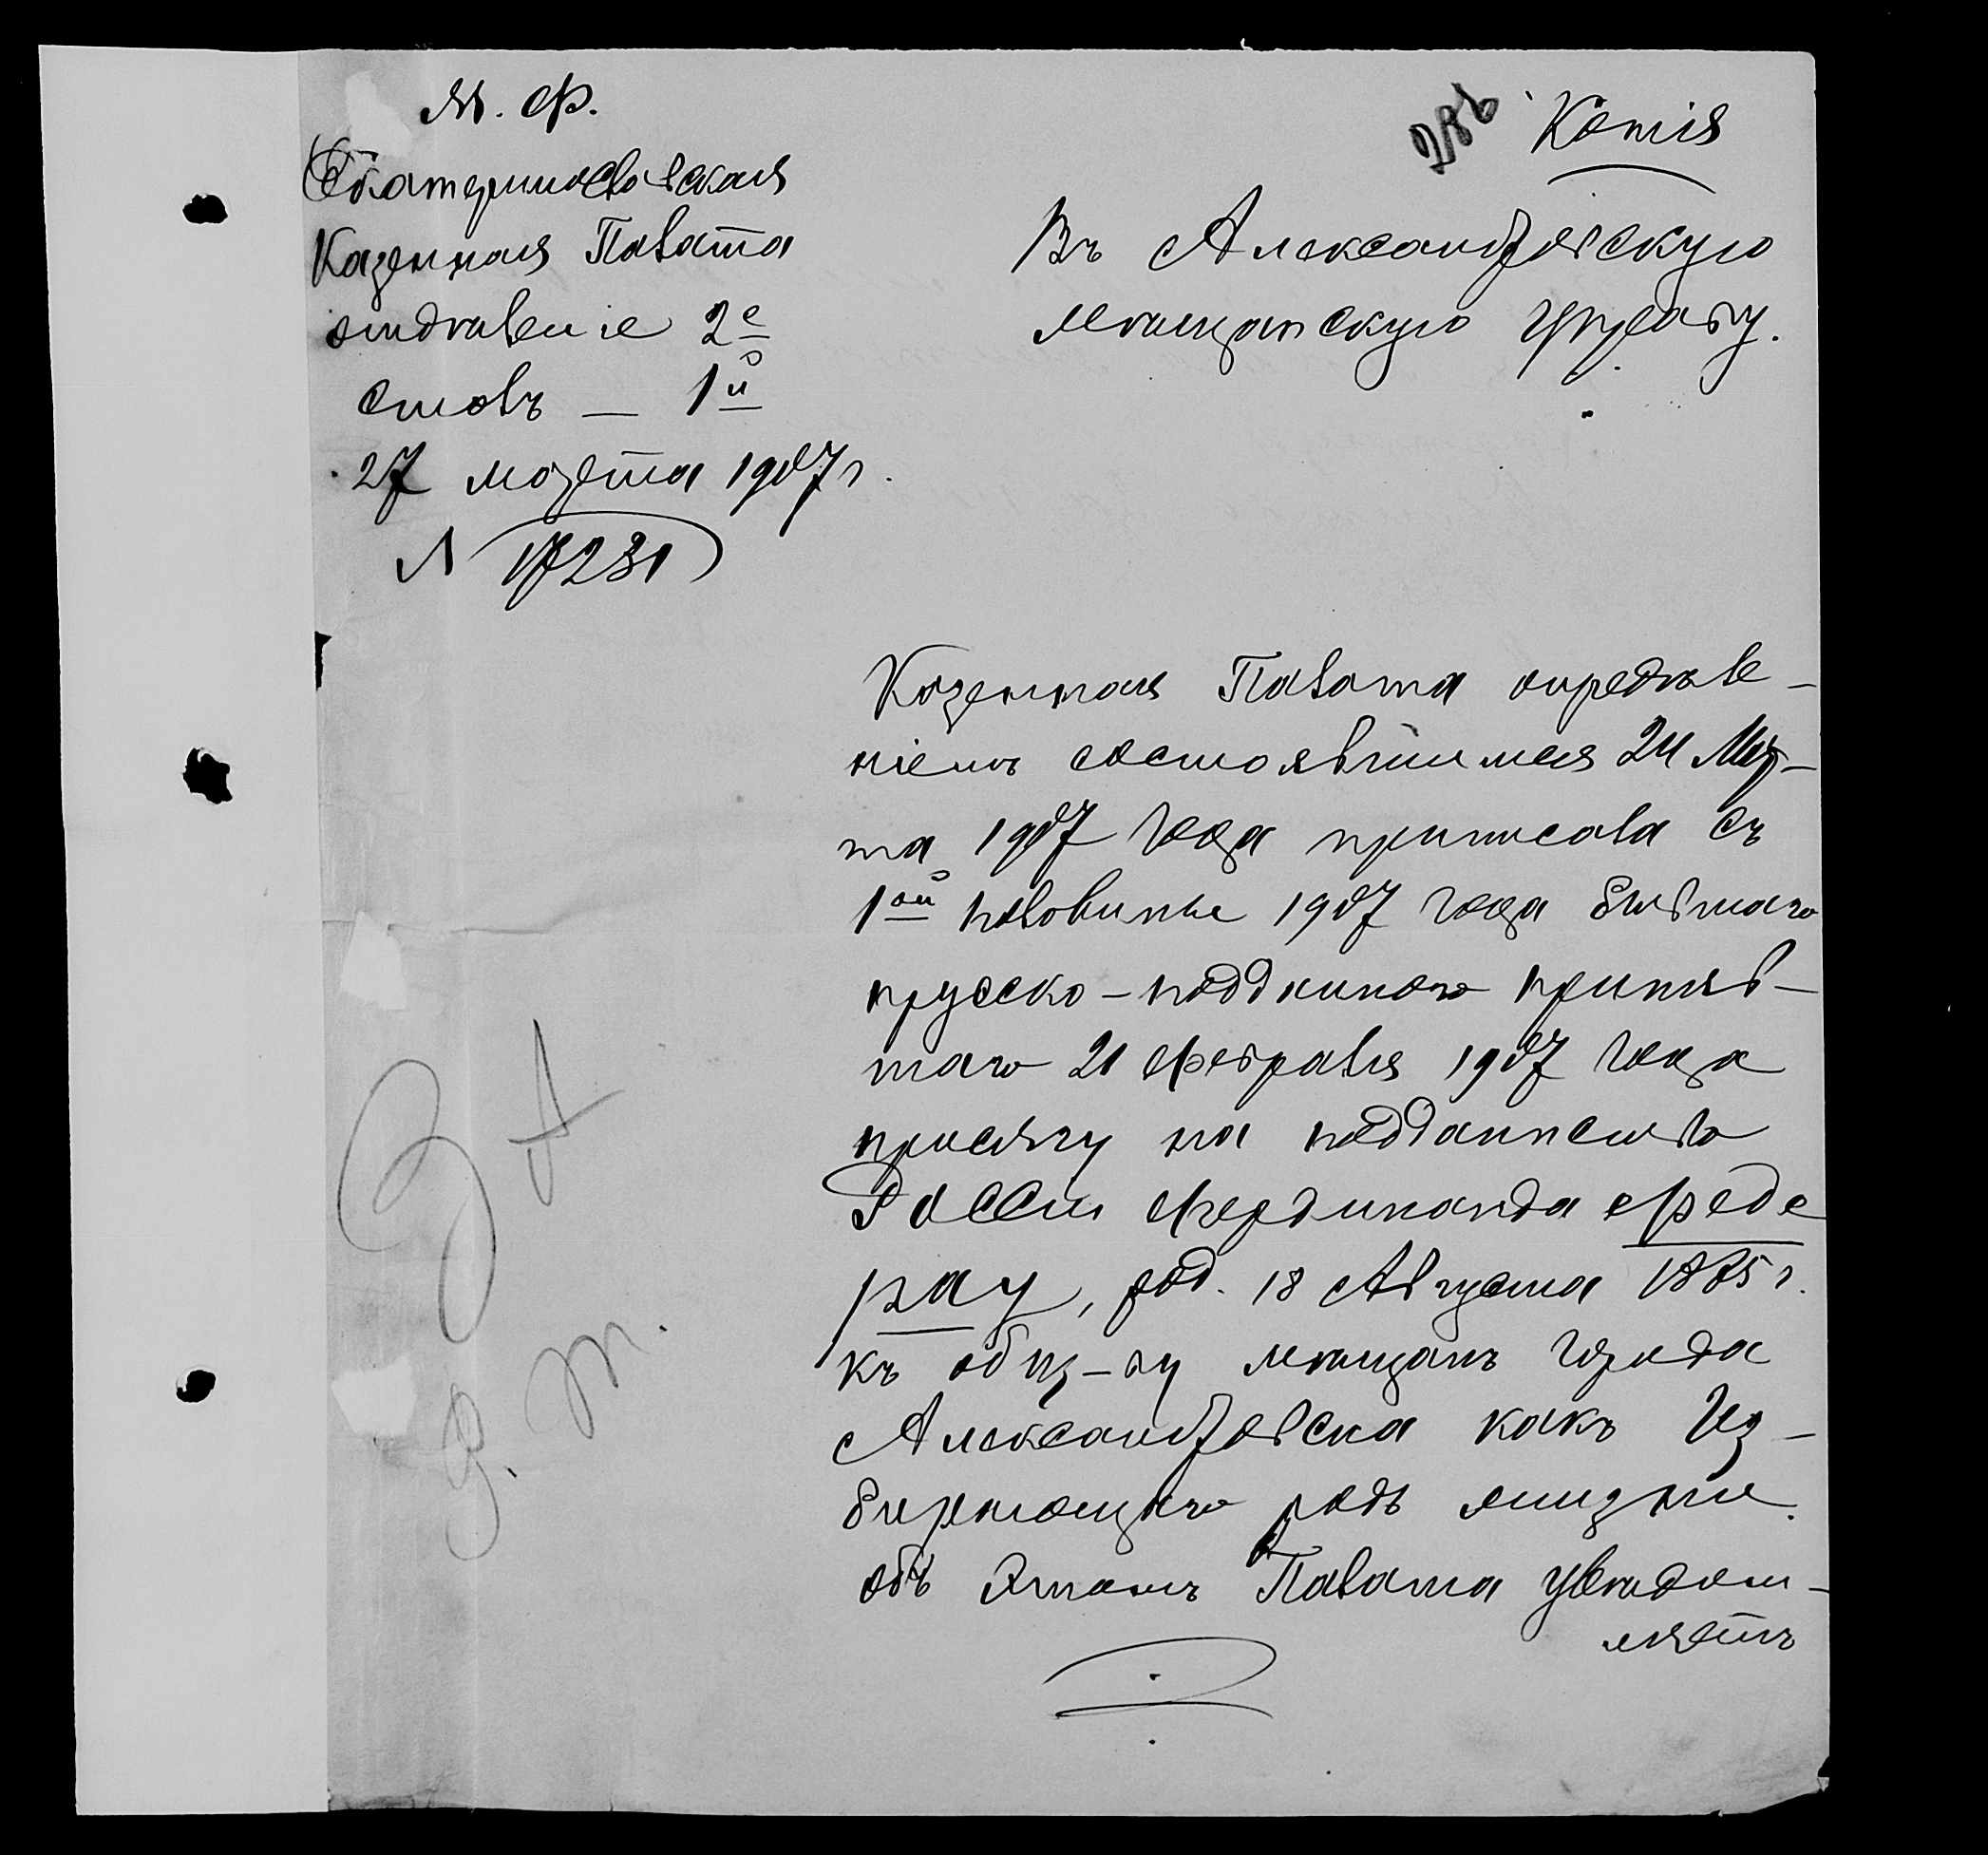 М. Ф.
Екатеринославская
Казенная Палата
отдѣленіе 2е
столъ — 1й
27 марта 1907 г.
№ 17231
286
Копія
Въ Александровскую
мѣщанскую Управу.
Казенная Палата опредѣле-
ніемъ состоявшимся 24 Мар-
та 1907 года приписала съ
1ой половины 1907 года бывшаго
прусско-подданнаго приняв-
шаго 21 февраля 1907 года
присягу на подданство
Россіи Фердинанда Феде
рау, род. 18 Августа 1885 г.
къ общ-ву мѣщанъ города
Александровска какъ из-
бирающаго родъ жизни.
объ этомъ Палата увѣдом-
ляетъ